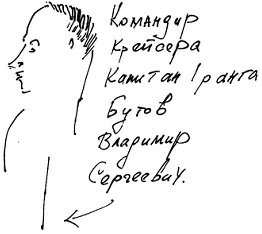 Командир
Крейсера
Капитан 1 ранга
Бутов
Владимир
Сергеевич.